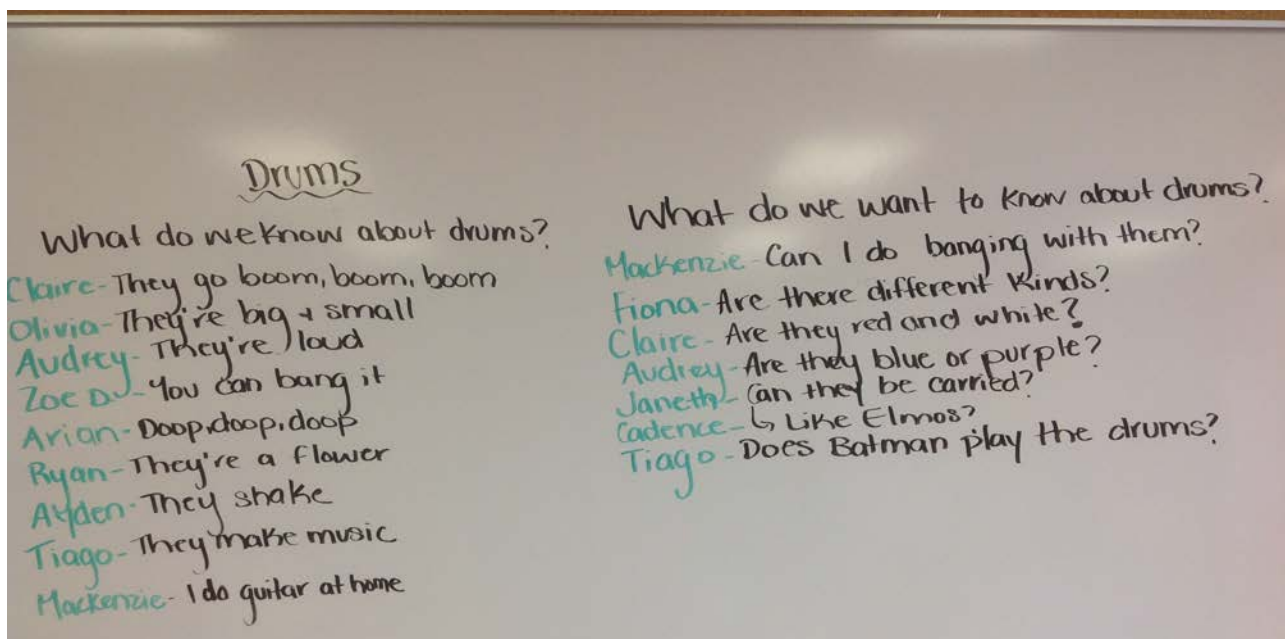 Drums
What do we know about drums?
Claire - They go boom, boom, boom
Olivia - They're big + small
Audrey - They're loud
Zoe D - You can bang it
Arian - Doop, doop, doop
Ryan - They're a flower
Ayden - They shake
Tiago - They make music
Mackenzie - I do guitar at home
What do we want to know about drums?
Mackenzie - Can I do banging with them?
Fiona - Are there different kinds?
Claire - Are they red and white?
Audrey - Are they blue or purple?
Janeth - Can they be carried?
Cadence - ↳ Like Elmos?
Tiago - Does Batman play the drums?